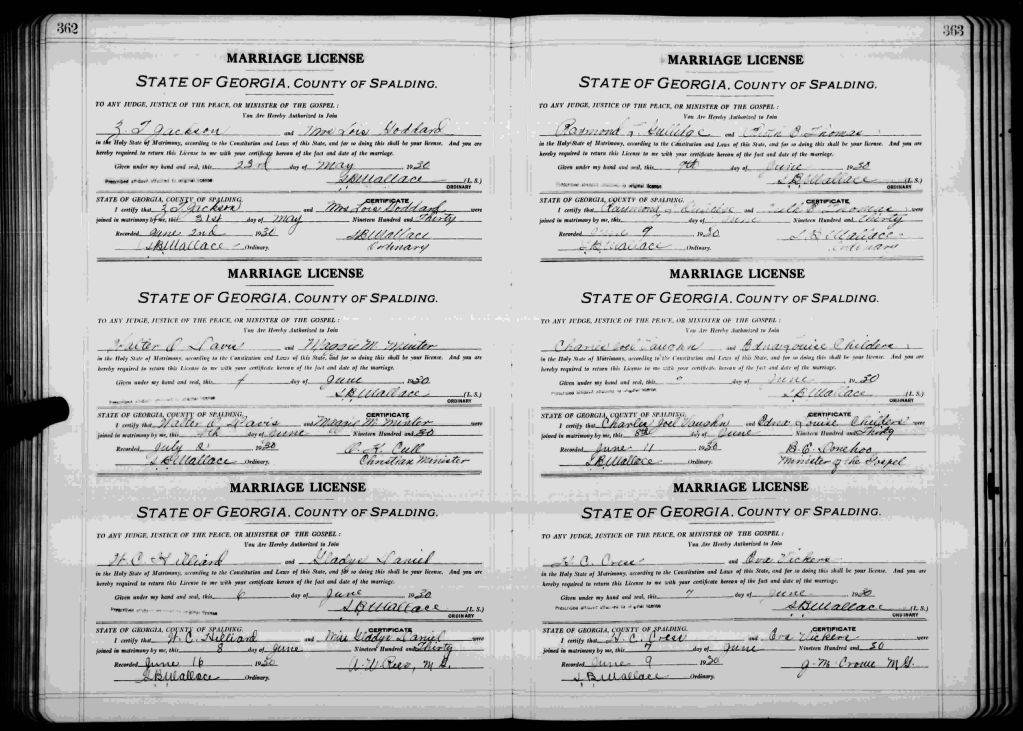 362
MARRIAGE LICENSE
STATE OF GEORGIA, COUNTY OF SPALDING.
TO ANY JUDGE, JUSTICE OF THE PEACE, OR MINISTER OF THE GOSPEL:
You Are Hereby Authorized to Join
Jackson and Mrs Lois Goddard
in the Holy State of Matrimony, according to the Constitution and Laws of this State, and for so doing this shall be your license. And you are
hereby required to return this License to me with your certificate hereon of the fact and date of the marriage.
Given under my hand and seal, this 23rd day of May 1930
Prescribed affidavit attached to original license S.B. Wallace (L. S.)
ORDINARY
STATE OF GEORGIA, COUNTY OF SPALDING. CERTIFICATE
I certify that Jackson and Mrs Lois Goddard were
joined in matrimony by me, this 31st day of May Nineteen Hundred and Thirty
Recorded June 2nd 1930 S.B. Wallace
S.B. Wallace Ordinary. Ordinary
MARRIAGE LICENSE
STATE OF GEORGIA, COUNTY OF SPALDING.
TO ANY JUDGE, JUSTICE OF THE PEACE, OR MINISTER OF THE GOSPEL:
You Are Hereby Authorized to Join
Walter Davis and Meggie M. Minter
in the Holy State of Matrimony, according to the Constitution and Laws of this State, and for so doing this shall be your license. And you are
hereby required to return this License to me with your certificate hereon of the fact and date of the marriage.
Given under my hand and seal, this day of June 1930
Prescribed affidavit attached to original license S.B. Wallace (L. S.)
ORDINARY
STATE OF GEORGIA, COUNTY OF SPALDING. CERTIFICATE
I certify that Walter Davis and Meggie M. Minter were
joined in matrimony by me, this 4th day of June Nineteen Hundred and 30
Recorded July 2 1930 Cull
S.B. Wallace Ordinary. Christian Minister
MARRIAGE LICENSE
STATE OF GEORGIA, COUNTY OF SPALDING.
TO ANY JUDGE, JUSTICE OF THE PEACE, OR MINISTER OF THE GOSPEL:
You Are Hereby Authorized to Join
H. C. Hilliard and Gladys Daniel
in the Holy State of Matrimony, according to the Constitution and Laws of this State, and for so doing this shall be your license. And you are
hereby required to return this License to me with your certificate hereon of the fact and date of the marriage.
Given under my hand and seal, this 6 day of June 1930
Prescribed affidavit attached to original license S.B. Wallace (L. S.)
ORDINARY
STATE OF GEORGIA, COUNTY OF SPALDING. CERTIFICATE
I certify that H. C. Hilliard and Miss Gladys Daniel were
joined in matrimony by me, this 8 day of June Nineteen Hundred and Thirty
Recorded June 16 1930 A. W. Rees, M. G.
S.B. Wallace Ordinary.
363
MARRIAGE LICENSE
STATE OF GEORGIA, COUNTY OF SPALDING.
TO ANY JUDGE, JUSTICE OF THE PEACE, OR MINISTER OF THE GOSPEL:
You Are Hereby Authorized to Join
Raymond and Ruth Thomas
in the Holy State of Matrimony, according to the Constitution and Laws of this State, and for so doing this shall be your license. And you are
hereby required to return this License to me with your certificate hereon of the fact and date of the marriage.
Given under my hand and seal, this 7th day of June 1930
Prescribed affidavit attached to original license S.B. Wallace (L. S.)
ORDINARY
STATE OF GEORGIA, COUNTY OF SPALDING. CERTIFICATE
I certify that Raymond and Ruth Thomas were
joined in matrimony by me, this day of June Nineteen Hundred and Thirty
Recorded June 9 1930 S.B. Wallace
S.B. Wallace Ordinary. Ordinary
MARRIAGE LICENSE
STATE OF GEORGIA, COUNTY OF SPALDING.
TO ANY JUDGE, JUSTICE OF THE PEACE, OR MINISTER OF THE GOSPEL:
You Are Hereby Authorized to Join
Charles Joel Vaughn and Edna Louise Childers
in the Holy State of Matrimony, according to the Constitution and Laws of this State, and for so doing this shall be your license. And you are
hereby required to return this License to me with your certificate hereon of the fact and date of the marriage.
Given under my hand and seal, this day of June 1930
Prescribed affidavit attached to original license S.B. Wallace (L. S.)
ORDINARY
STATE OF GEORGIA, COUNTY OF SPALDING. CERTIFICATE
I certify that Charles Joel Vaughn and Edna Louise Childers were
joined in matrimony by me, this 8th day of June Nineteen Hundred and Thirty
Recorded June 11 1930 B. E. Donehoo
S.B. Wallace Ordinary. Minister of the Gospel
MARRIAGE LICENSE
STATE OF GEORGIA, COUNTY OF SPALDING.
TO ANY JUDGE, JUSTICE OF THE PEACE, OR MINISTER OF THE GOSPEL:
You Are Hereby Authorized to Join
H. C. Crew and Eva Vickers
in the Holy State of Matrimony, according to the Constitution and Laws of this State, and for so doing this shall be your license. And you are
hereby required to return this License to me with your certificate hereon of the fact and date of the marriage.
Given under my hand and seal, this 7 day of June 1930
Prescribed affidavit attached to original license S.B. Wallace (L. S.)
ORDINARY
STATE OF GEORGIA, COUNTY OF SPALDING. CERTIFICATE
I certify that H. C. Crew and Eva Vickers were
joined in matrimony by me, this 7 day of June Nineteen Hundred and 30
Recorded June 9 1930 J. M. Crowe M. G.
S.B. Wallace Ordinary.